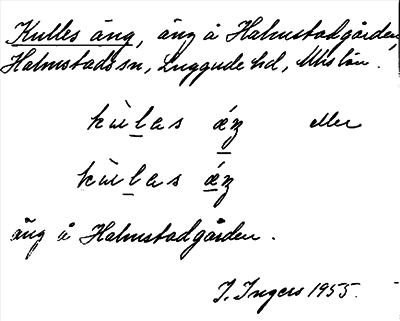 Kulles äng, äng å Halmstadgården,
Halmstads sn, Luggude hd, Mlhs län.
kùlas ǽŋ eller
kùlas ǽŋ
äng å Halmstadgården.
I. Ingers 1955.